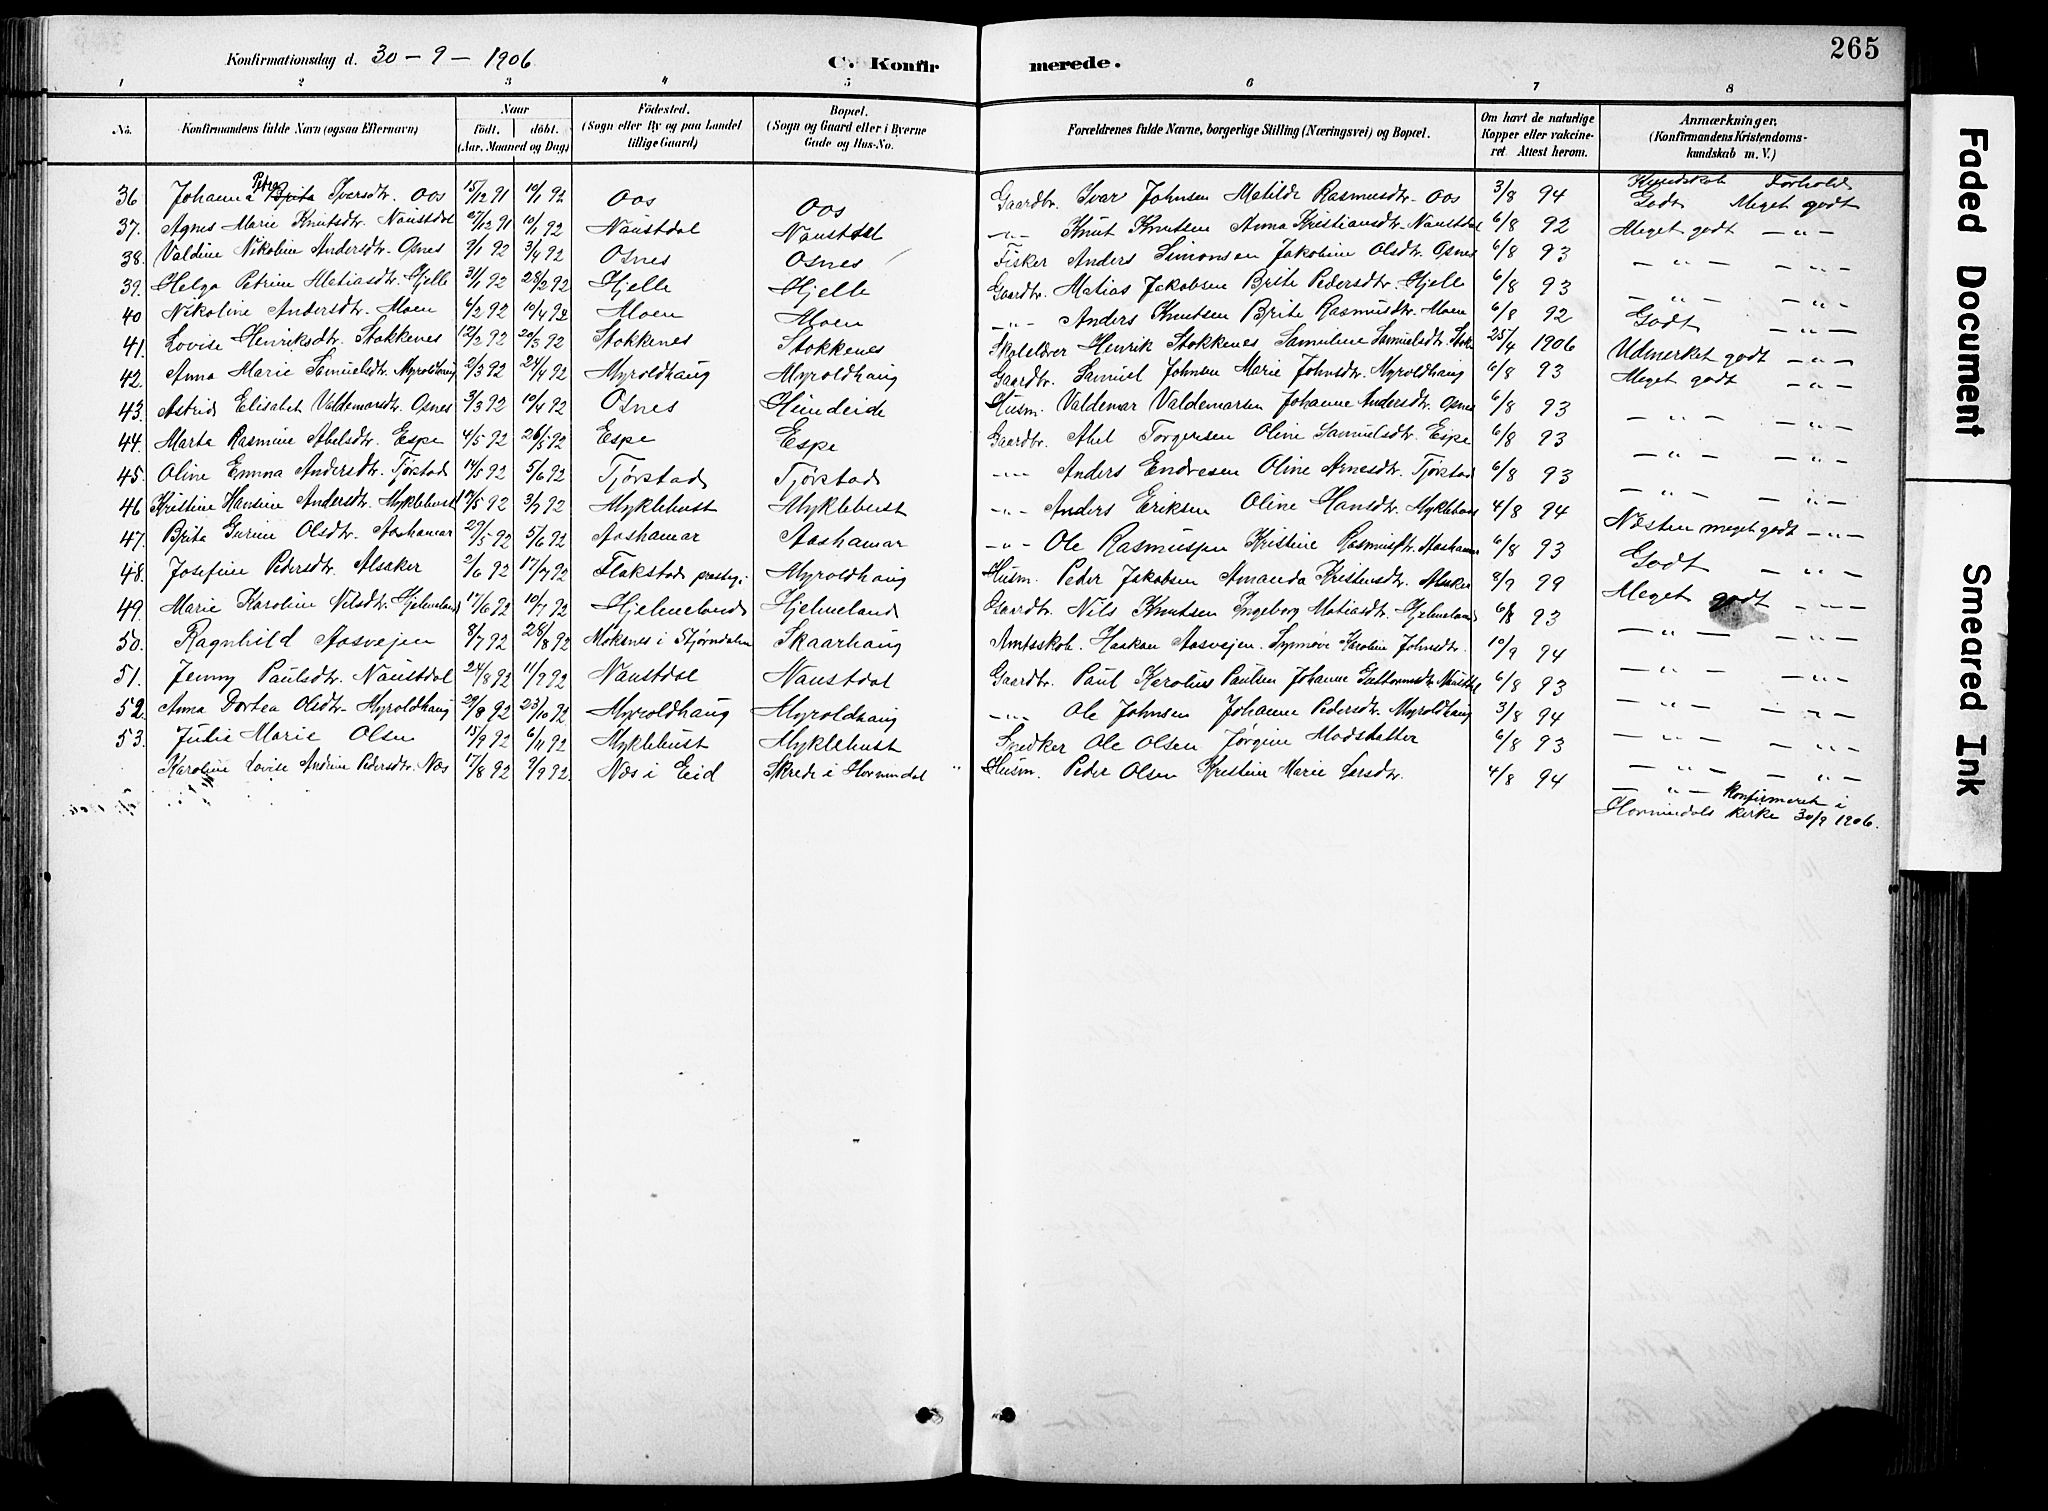 Konfirmationsdag d. 30 - 9 - 1906 C. Konfirmerede. 265
1 2 3 4 5 6 7 8
No. Konfirmandens fulde Navn (ogsaa Efternavn) Naar født. døbt. (Aar, Maaned og Dag) Fødested. (Sogn eller By og paa Landet tillige Gaard) Bopæl. (Sogn og Gaard eller i Byerne Gade og Hus-No. Forældrenes fulde Navne, borgerlige Stilling (Næringsvei) og Bopæl. Om havt de naturlige Kopper eller vakcineret Attest herom. Anmærkninger, (Konfirmandens Kristendomskundskab m. V.)
Kundskab Forhold
36. Johanna Petrea Iversdtr. Oos 15/12 91 10/1 92 Oos Oos Gaardbr. Ivar Johnsen Matilde Rasmusdtr. Oos 3/8 94 Godt Meget godt
37. Agnes Marie Knutsdtr. Naustdal 27/12 91 10/1 92 Naustdal Naustdal -"- Knut Knutsen Anna Kristiansdtr. Naustdal 6/8 92 Meget godt -"-
38. Valdine Nikoline Andersdtr. Osnes 9/1 92 3/4 92 Osnes Osnes Fisker Anders Simonsen Jakobine Olsdtr. Osnes 6/8 93 -"- -"-
39. Helga Petrine Matiasdtr. Hjelle 31/1 92 28/2 92 Hjelle Hjelle Gaardbr. Matias Jakobsen Brite Pedersdtr. Hjelle 6/8 93 -"- -"-
40 Nikoline Andersdtr. Moen 6/2 92 10/4 92 Moen Moen -"- Anders Knutsen Brite Rasmusdtr. Moen 6/8 92 Godt -"-
41. Lovise Henriksdtr. Stokkenes 12/2 92 20/3 92 Stokkenes Stokkenes Skolelærer Henrik Stokkenes Samuline Samuelsdtr. Stok. 25/4 1906 Udmerket godt -"-
42. Anna Marie Samuelsdtr. Myroldhaug 2/3 92 24/4 92 Myroldhaug Myroldhaug Gaardbr. Samuel Johnsen Marie Johnsdtr. Myroldhaug 6/8 93 Meget godt -"-
43. Astrid Elisabet Valdemarsdtr. Osnes 3/3 92 10/4 92 Osnes Hundeide Husm. Valdemar Valdemarsen Johanne Andersdtr. Osnes 6/8 93 -"- -"-
44. Marta Rasmine Abelsdtr. Espe 4/5 92 26/5 92 Espe Espe Gaardbr. Abel Torgersen Oline Samuelsdtr. Espe 6/8 93 -"- -"-
45. Oline Emma Andersdtr. Tjørstad 14/5 92 5/6 92 Tjørstad Tjørstad -"- Anders Endresen Oline Arnesdtr. Tjørstad 6/8 93 -"- -"-
46 Kristine Hansine Andersdtr. Myklebust 19/5 92 3/7 92 Myklebust Myklebust -"- Anders Eriksen Oline Hansdtr. Myklebust 4/8 94 Næsten meget godt -"-
47. Brita Gurine Olsdtr. Aashamar 29/5 92 5/6 92 Aashamar Aashamar -"- Ole Rasmussen Kristine Rasmusdtr. Aashamar 6/8 93 Godt -"-
48. Josefine Pedersdtr. Alsaker 2/6 92 17/7 92 Flakstad prestgj. Myroldhaug Husm. Peder Jakobsen Amanda Kristensdtr. Alsaker 8/9 99 Meget godt -"-
49. Marie Karoline Nilsdtr. Hjelmeland 17/6 92 10/7 92 Hjelmeland Hjelmeland Gaardbr. Nils Knutsen Ingeborg Matiasdtr. Hjelmeland 6/8 93 -"- -"-
50. Ragnhild Aasvejen 8/7 92 28/8 92 Moksnes i Stjørndalen Skaarhaug Amtsskob. Haakon Aasvejen. Synnøve Karoline Johnsdtr. 10/9 94 -"- -"-
51. Jenny Paulsdtr. Naustdal 24/8 92 11/9 92 Naustdal Naustdal Gaardbr. Paul Karolius Paulsen Johanne Guttormsdtr. Naustdal 6/8 93 -"- -"-
52. Anna Dortea Olsdtr. Myroldhaug 29/8 92 23/10 92 Myroldhaug Myroldhaug -"- Ole Johnsen Johanne Pedersdtr. Myroldhaug 3/8 94 -"- -"-
53. Julie Marie Olsen 15/9 92 6/11 92 Myklebust Myklebust Snedker Ole Olsen Jørgine Madsdatter 6/8 93 -"- -"-
Karoline Lovise Andrine Pedersdtr. Næs 17/8 92 9/9 92 Næs i Eid Skrede i Hornindal Husm. Peder Olsen Kristine Marie Larsdtr. 4/8 94 -"- Konfirmeret i
Hornindals kirke 30/9 1906.
Faded Document
Smeared Ink